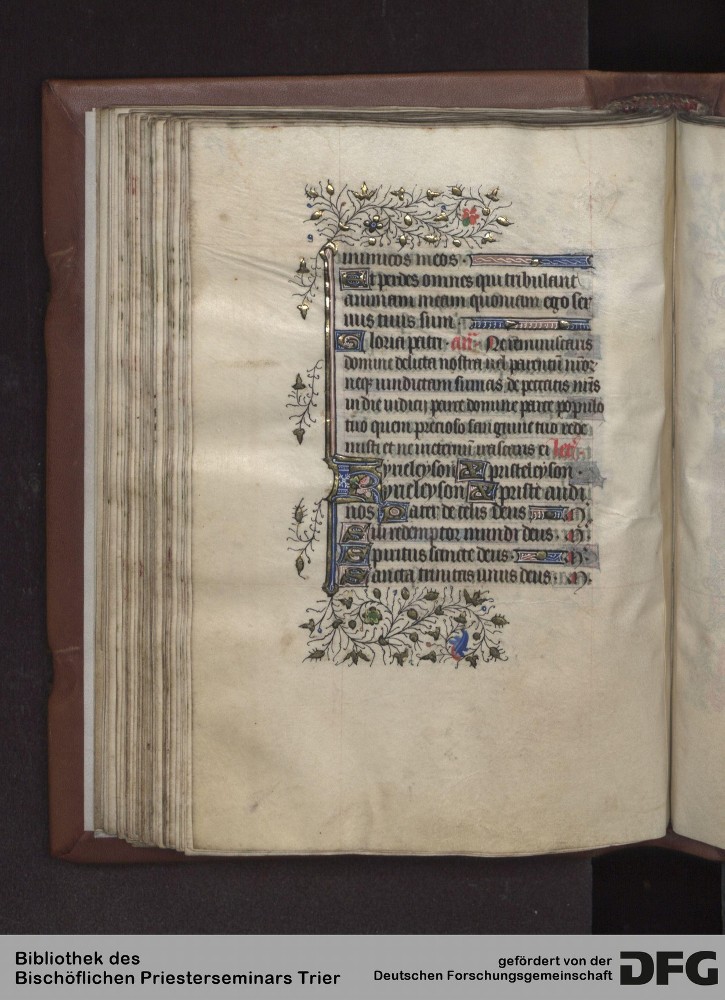 inimicos meos.
Et perdes omnes qui tribulant
animam meam quoniam ego ser
uus tuus sum
Gloria patri. an̄. Ne reminiscaris
domine delicta nostra uel parentū nr̄or
neqꝫ uindictam sumas de peccatis nr̄is
in die iudicii parce domine parce populo
tuo quem precioso sanguine tuo rede
misti et ne in eternū irascaris ei
Kyrieleyson Xpristeleyson.
Kyrieleyson Xpriste audi
nos Pater de celis deus m̄.
Fili redemptor mundi deus. m̄.
Spiritus sancte deus. m̄.
Sancta trinitas unus deus. m̄.
Bibliothek des
Bischöflichen Priesterseminars Trier
gefördert von der
Deutschen Forschungsgemeinschaft
DFG